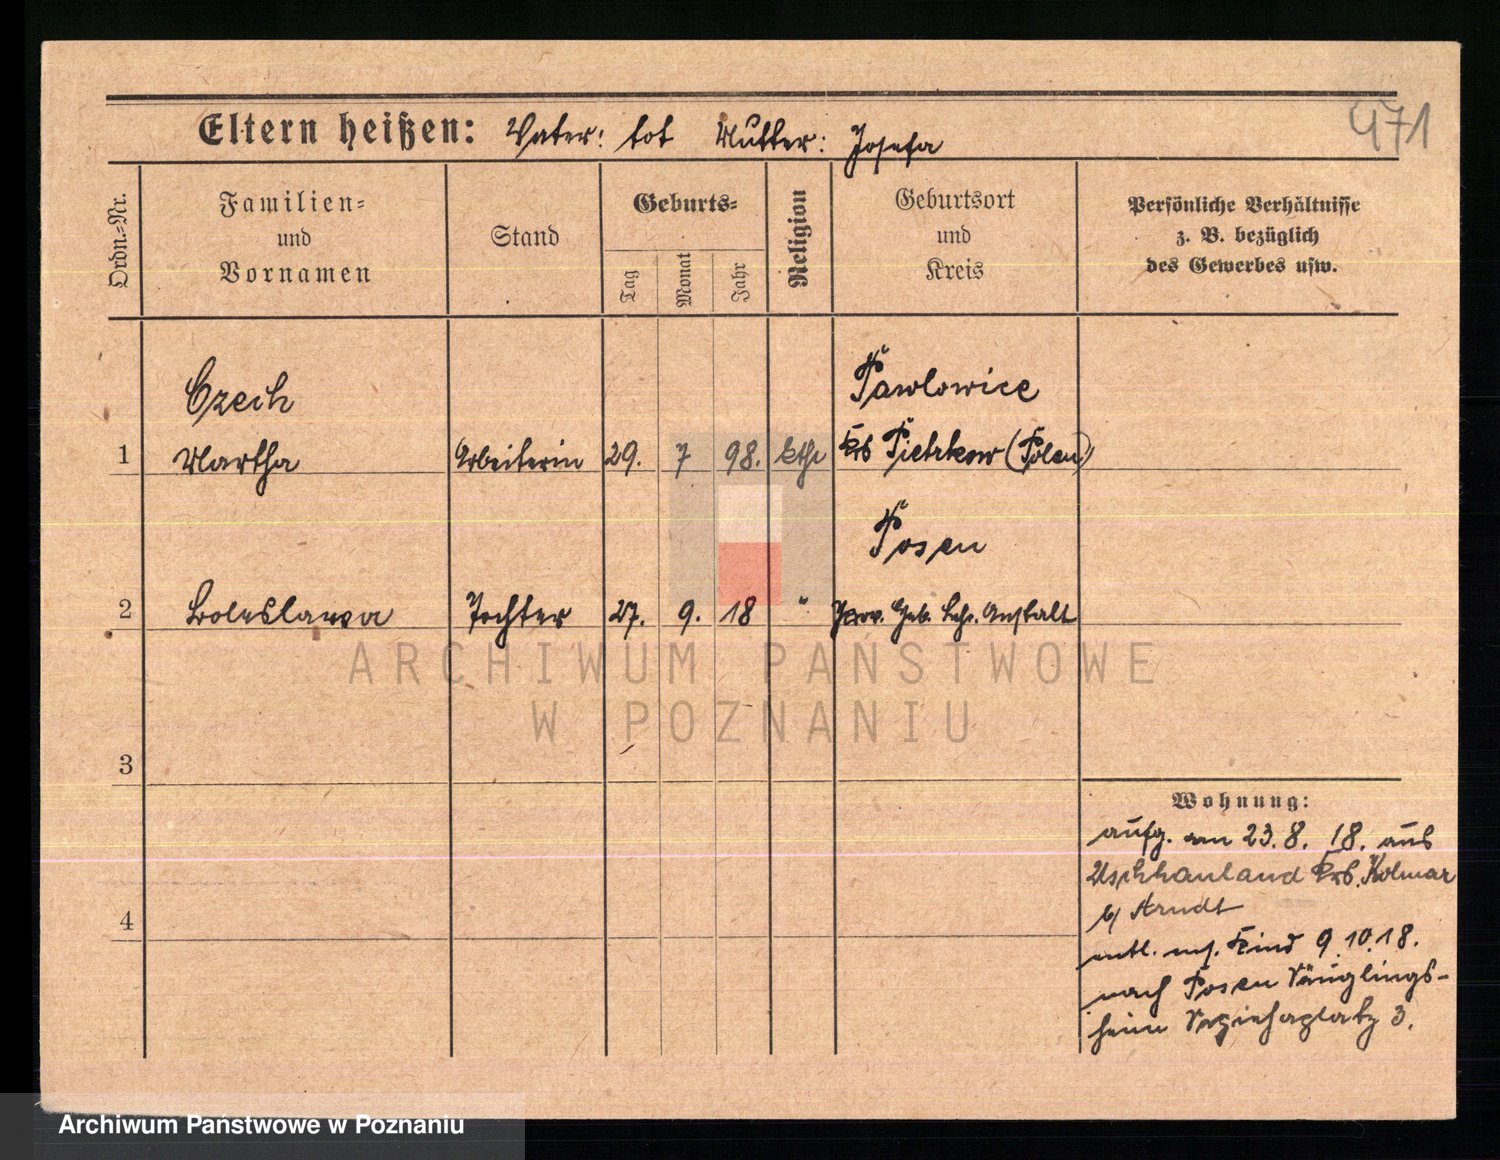 471
Eltern heißen: Vater: tot Mutter: Josefa
Ordn.-Nr.
Familien-
und
Vornamen
Stand
Geburts-
Tag
Monat
Jahr
Religion
Geburtsort
und
Kreis
Persönliche Verhältnisse
z. B. bezüglich
des Gewerbes usw.
Czech
Pawlowice
1 Martha Arbeiterin 29. 7 98. kth Krs Pietrkow (Polen)
Posen
2 Boleslawa Tochter 27. 9. 18 " Prov. Geb. Lehr. Anstalt
ARCHIWUM PAŃSTWOWE
W POZNANIU
3
4
Wohnung:
aufg. am 23. 8. 18. aus
Uschhauland Krs. Kolmar
b/ Arndt
entl. m. Kind 9.10.18.
nach Posen Säuglings-
heim 3.
Archiwum Państwowe w Poznaniu